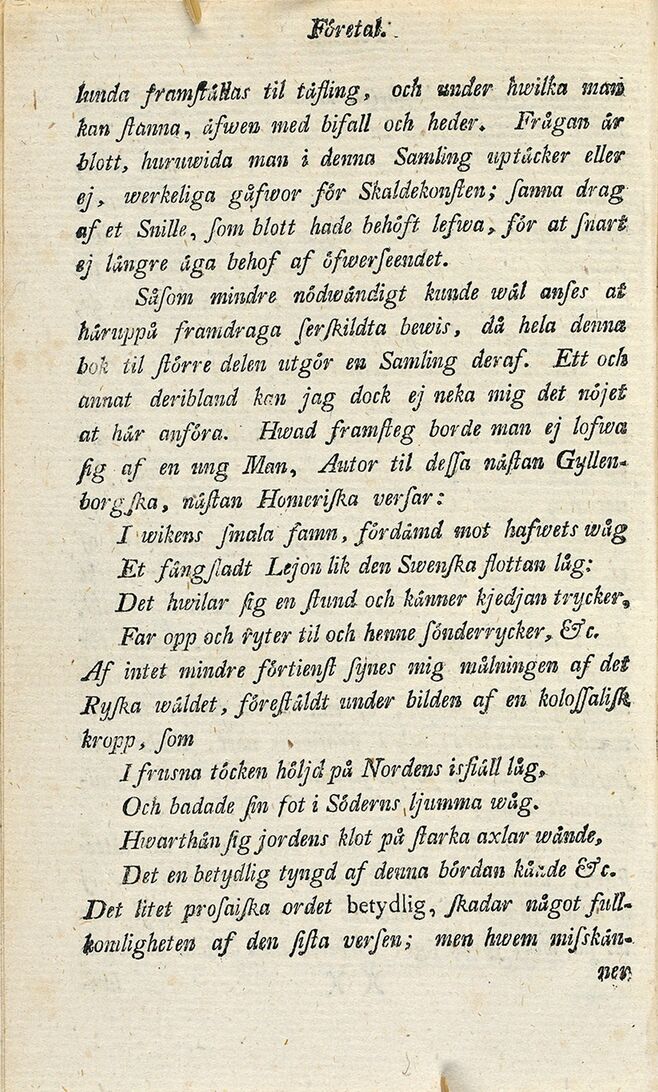 Företal.
lunda framſtällas til täfling, och under hwilka man
kan ſtanna, äfwen med bifall och heder. Frågan är
blott, huruwida man i denna Samling uptäcker eller
ej, werkeliga gåfwor för Skaldekonſten; ſanna drag
af et Snille, ſom blott hade behöft lefwa, för at ſnart
ej längre äga behof af öfwerſeendet.
Såſom mindre nödwändigt kunde wäl anſes at
häruppå framdraga ſerſkildta bewis, då hela denna
bok til ſtörre delen utgör en Samling deraf. Ett och
annat deribland kan jag dock ej neka mig det nöjet
at här anföra. Hwad framſteg borde man ej lofwa
ſig af en ung Man, Autor til deſſa näſtan Gyllen-
borgſka, näſtan Homeriſka verſar:
I wikens ſmala famn, fördämd mot hafwets wåg
Et fängſladt Lejon lik den Swenſka flottan låg:
Det hwilar ſig en ſtund och känner kjedjan trycker,
Far opp och ryter til och henne ſönderrycker, &c.
Af intet mindre förtienſt ſynes mig målningen af det
Ryſka wäldet, föreſtäldt under bilden af en koloſſaliſk
kropp, ſom
I frusna töcken höljd på Nordens isfiäll låg,
Och badade ſin fot i Söderns ljumma wåg.
Hwarthän ſig jordens klot på ſtarka axlar wände,
Det en betydlig tyngd af denna bördan kände &c.
Det litet proſaiſka ordet betydlig, ſkadar något full-
komligheten af den ſiſta verſen; men hwem miſskän-
ner